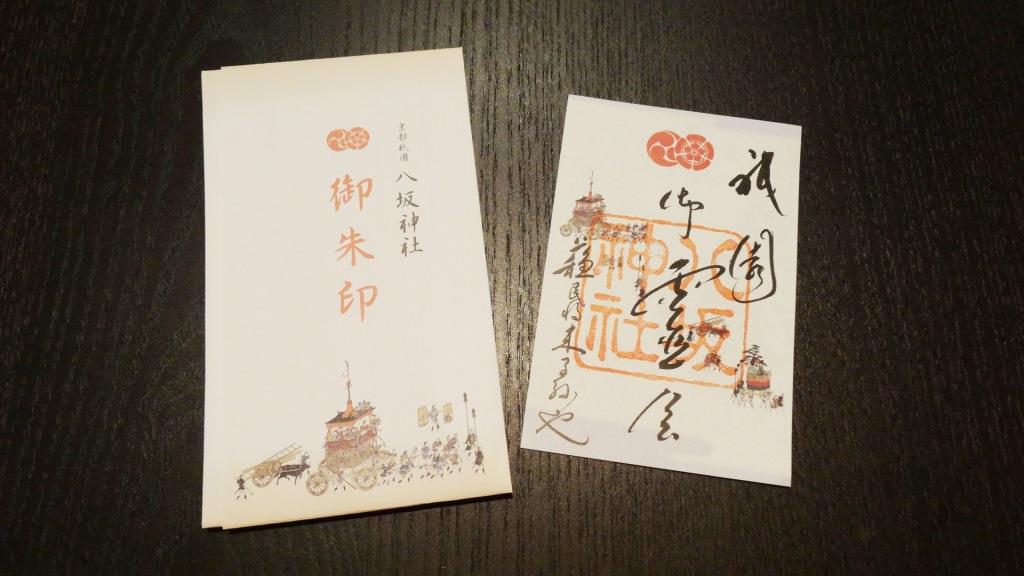 京都祇園 八坂神社
御朱印
祇園
御霊会
蘇民将来子孫也
八坂
神社